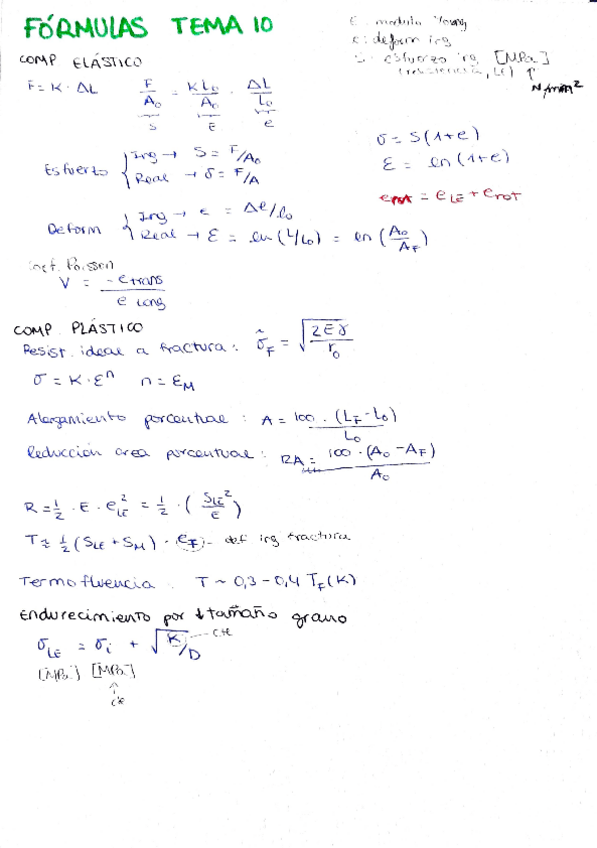 FÓRMULAS TEMA 10
E: modulo Young
e: deform ing
S: esfuerzo ing [MPa]
(resistencia, LE) ↑
N/mm²
COMP ELÁSTICO
F = K · ΔL
F/A₀ = K L₀/A₀ · ΔL/L₀
S E e
σ = S(1+e)
ε = ln(1+e)
Esfuerzo { Ing → S = F/A₀
Real → σ = F/A
e = e_LE + e_rot
Deform { Ing → e = Δl/l₀
Real → ε = ln(L/L₀) = ln(A₀/A_F)
Poisson
ν = -e trans / e long
COMP. PLÁSTICO
Resist. ideal a fractura: σ̂_F = √(2Eγ/r₀)
σ = K · εⁿ n = ε_M
Alargamiento porcentual: A = 100 · (L_F - L₀) / L₀
Reducción area porcentual: RA = 100 · (A₀ - A_F) / A₀
R = 1/2 · E · e_LE² = 1/2 · (S_LE²/E)
T ≈ 1/2 (S_LE + S_M) · e_F - def ing fractura
Termofluencia: T ~ 0,3 - 0,4 T_F (K)
Endurecimiento por ↓ tamaño grano
σ_LE = σ_i + √K/D --- cte
[MPa] [MPa]
↑
cte